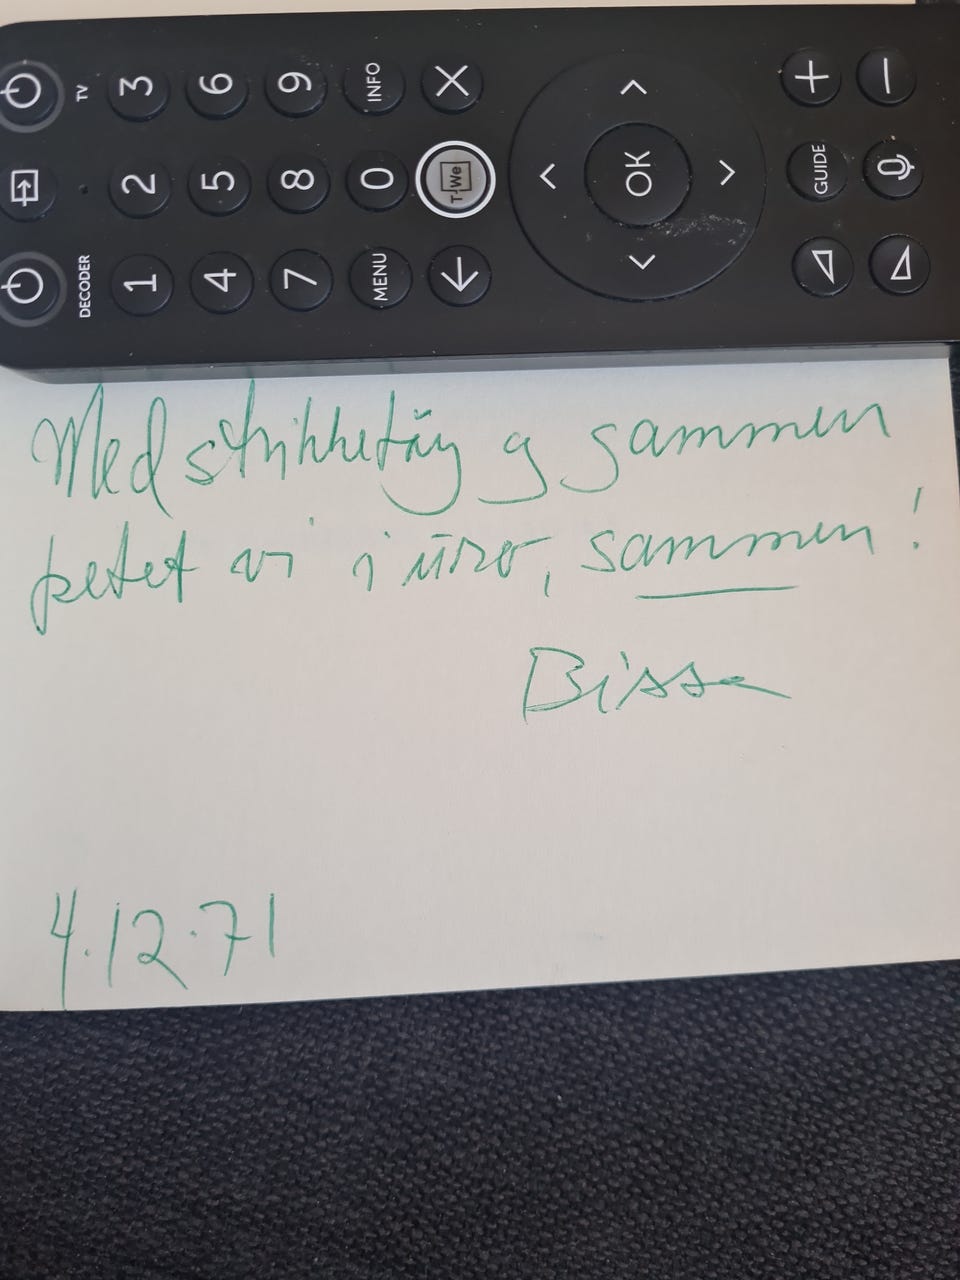 TV 3 6 9 INFO
2 5 8 0 T-We OK GUIDE
DECODER 1 4 7 MENU
Med strikketøy og gammen
vi i uro, sammen!
Bissa
4.12.71